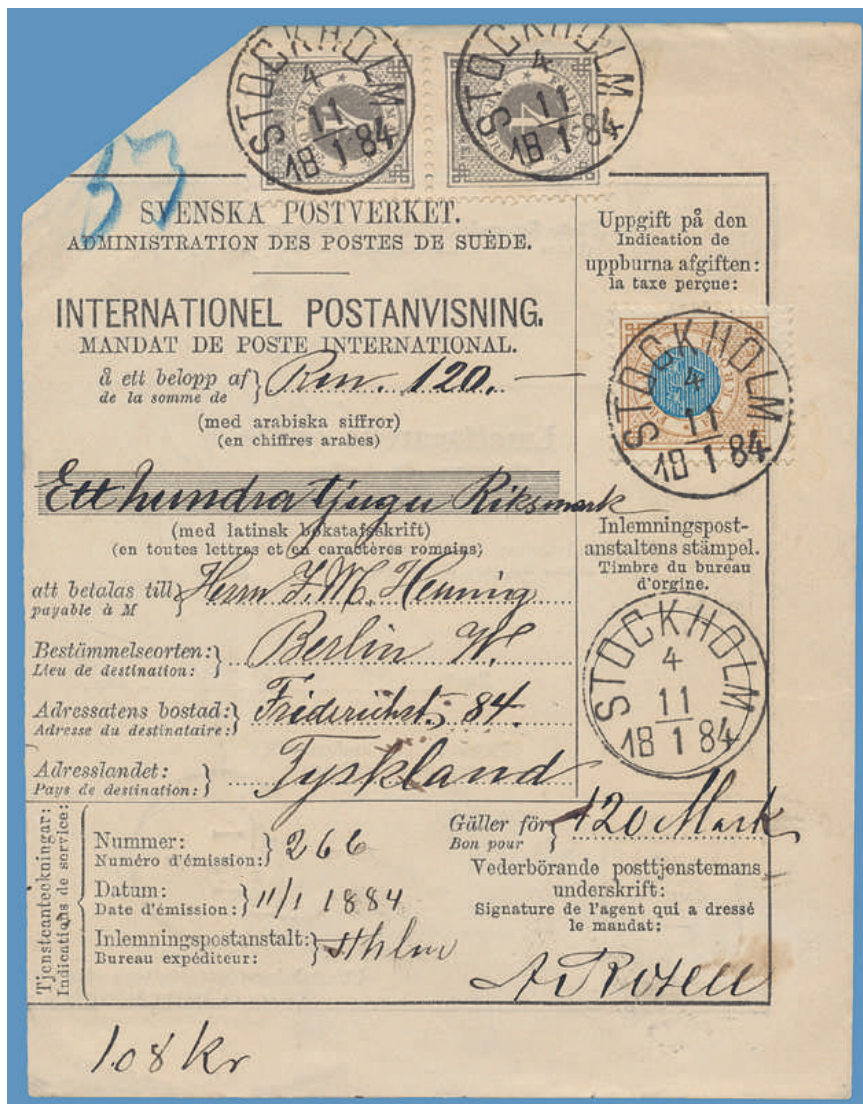 STOCKHOLM
4
11
18 1 84
STOCKHOLM
4
11
18 1 84
57
SVENSKA POSTVERKET.
ADMINISTRATION DES POSTES DE SUÈDE.
INTERNATIONEL POSTANVISNING.
MANDAT DE POSTE INTERNATIONAL.
å ett belopp af } Rm. 120.
de la somme de
(med arabiska siffror)
(en chiffres arabes)
Ett hundra tjugu Riksmark
(med latinsk bokstafsskrift)
(en toutes lettres et en caractères romains)
att betalas till } Herrn J. M. Henning
payable à M
Bestämmelseorten: } Berlin W.
Lieu de destination:
Adressatens bostad: } Friderichst. 84.
Adresse du destinataire:
Adresslandet: } Tyskland
Pays de destination:
Uppgift på den
Indication de
uppburna afgiften:
la taxe perçue:
STOCKHOLM
4
11
18 1 84
Inlemningspost-
anstaltens stämpel.
Timbre du bureau
d'orgine.
STOCKHOLM
4
11
18 1 84
Tjensteanteckningar:
Indications de service:
Nummer: } 266
Numéro d'émission:
Datum: } 11/1 1884
Date d'émission:
Inlemningspostanstalt: } Sthlm
Bureau expéditeur:
Gäller för } 120 Mark
Bon pour
Vederbörande posttjenstemans
underskrift:
Signature de l'agent qui a dressé
le mandat:
A Rosen
1.08 kr